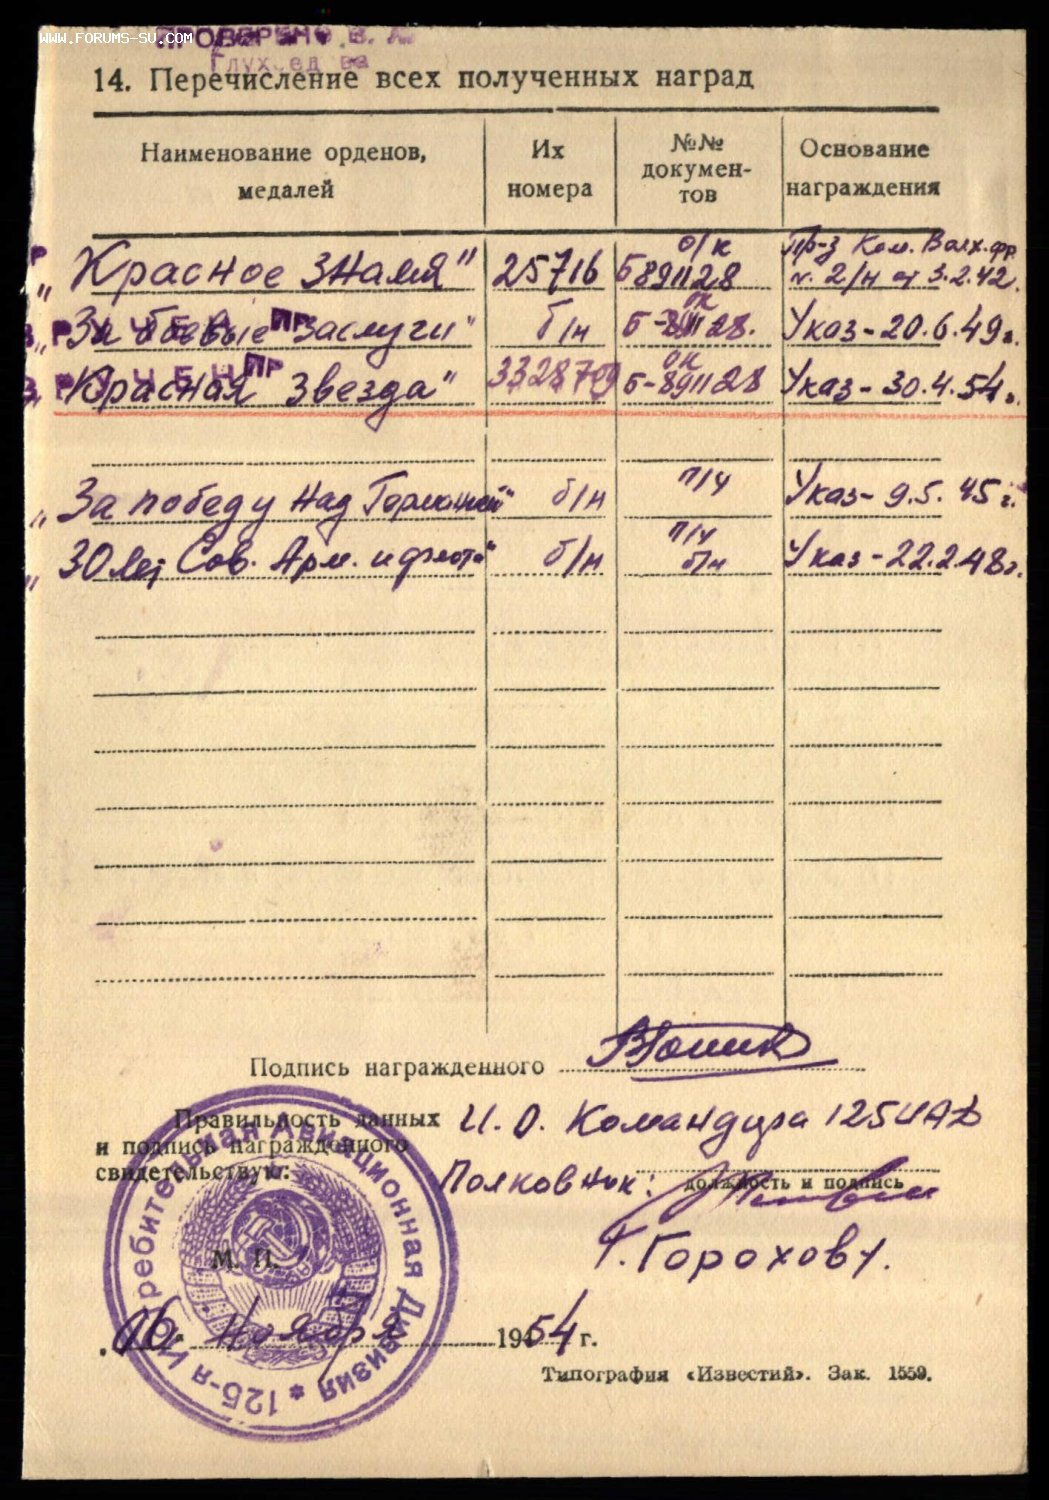 WWW.FORUMS-SU.COM
ПРОВЕРЕНО В. А.
14. Перечисление всех полученных наград
Наименование орденов, медалей
Их номера
№№ документов
Основание награждения
"Красное Знамя" 25716 о/к Б891128 Пр-з Ком. Волх. фр. № 2/н от 3.2.42.
ВРУЧЕН ПР
"За боевые заслуги" б/н ок Б-891128. Указ-20.6.49г.
ВРУЧЕН ПР
"Красная Звезда" 3328759 ок Б-891128 Указ-30.4.54г.
"За победу над Германией" б/н п/ч Указ-9.5.45г.
"30 лет Сов. Арм. и флота" б/н п/ч б/н Указ-22.2.48г.
Подпись награжденного
Правильность данных
и подпись награжденного
свидетельствую:
И.О. Командира 125 ИАД
Полковник:
должность и подпись
Г. Горохов.
М. П.
125-я Истребительная Авиационная Дивизия
16. Ноября 1954 г.
Типография «Известий». Зак. 1559.